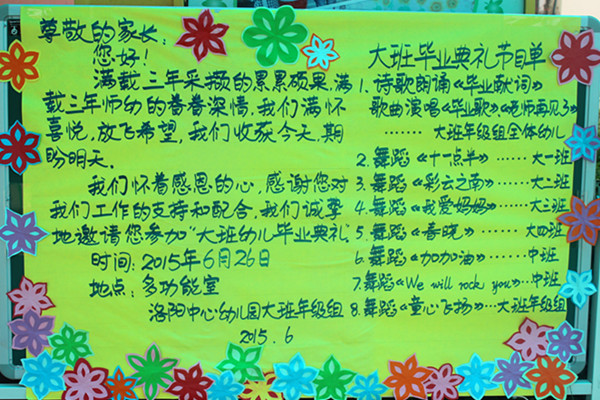 尊敬的家长:
您好!
满载三年采撷的累累硕果,满
载三年师幼的番番深情,我们满怀
喜悦,放飞希望,我们收获今天,期
盼明天。
我们怀着感恩的心,感谢您对
我们工作的支持和配合,我们诚挚
地邀请您参加"大班幼儿毕业典礼
时间:2015年6月26日
地点:多功能室
洛阳中心幼儿园大班年级组
2015.6
大班毕业典礼节目单
1.诗歌朗诵《毕业献词》
歌曲演唱《毕业歌》、《老师再见了》
……大班年级组全体幼儿
2.舞蹈《十一点半》……大一班
3.舞蹈《彩云之南》……大二班
4.舞蹈《我爱妈妈》……大三班
5.舞蹈《春晓》……大四班
6.舞蹈《加加油》……中班
7.舞蹈《We will rock you》…中班
8.舞蹈《童心飞扬》…大班年级组